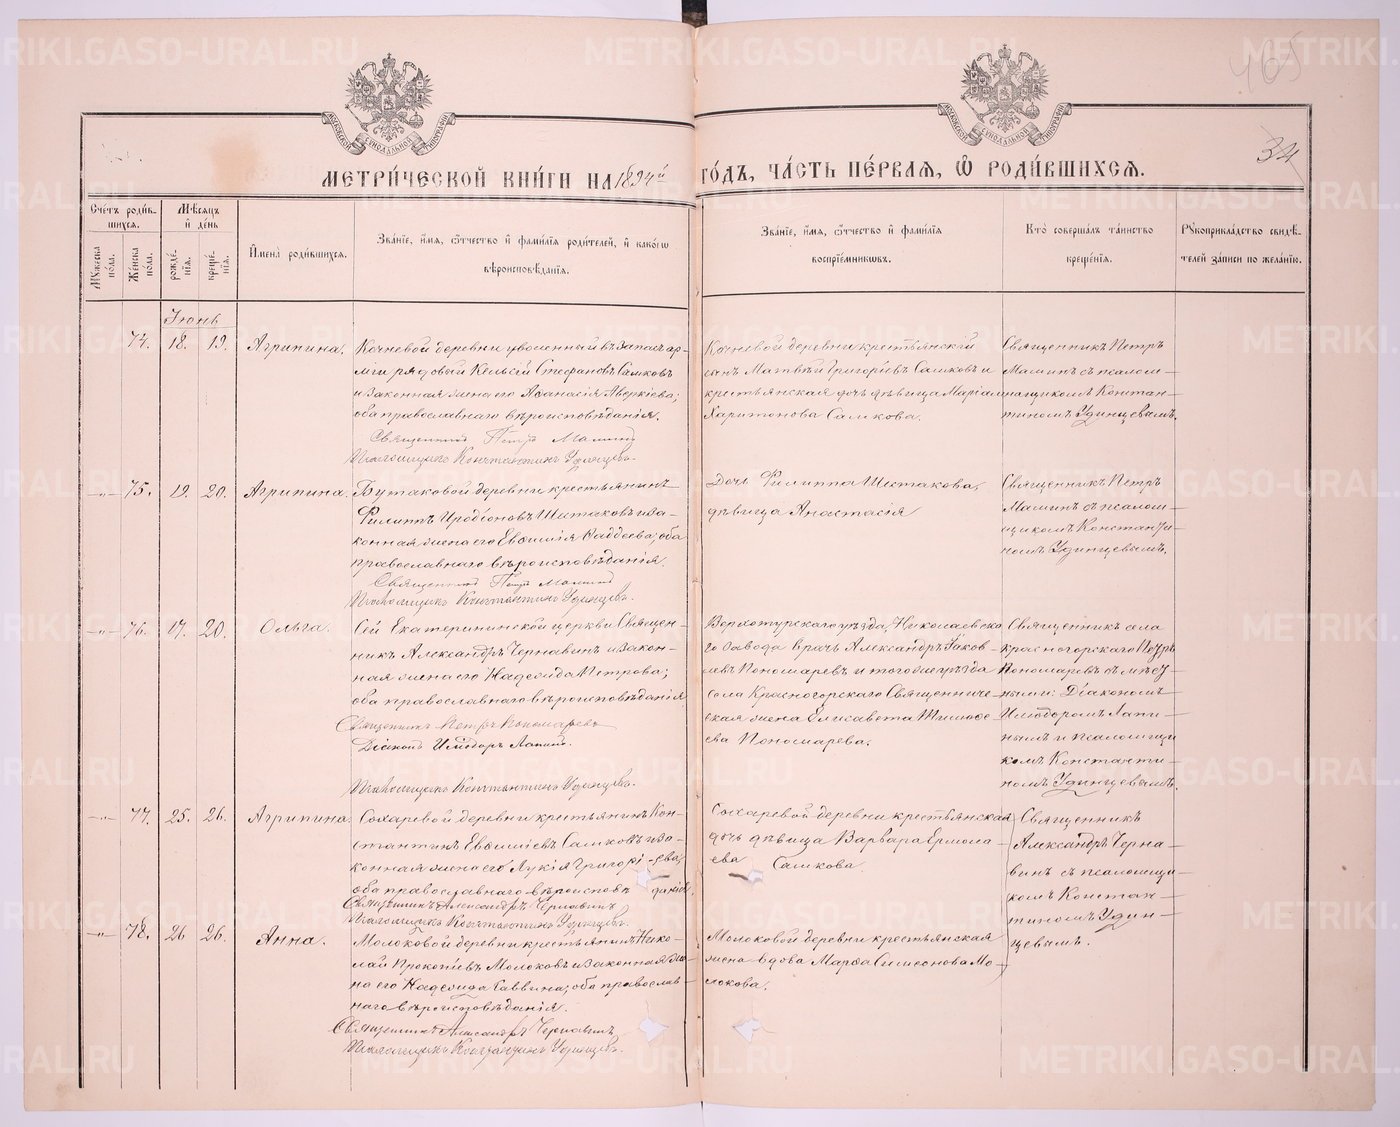 МЕТРИ́ЧЕСКОЙ КНИ́ГИ НА 1894й ГО́ДЪ, ЧА́СТЬ ПЕ́РВАЯ, Ѽ РОДИ́ВШИХСЯ.
34
465
Сче́тъ роди́в-
шихся.
Мѣ́сяцъ
и҆ де́нь
Му́жеска
по́ла.
Же́нска
по́ла.
рожде́-
нія.
креще́-
нія.
И҆мена̀ роди́вшихся.
Зва́ніе, и҆́мя, ѻ҆́тчество и҆ фами́лія роди́телей, и҆ како́гѡ
вѣроисповѣ́данія.
Зва́ніе, и҆́мя, ѻ҆́тчество и҆ фами́лія
воспріе́мниковъ.
Кто̀ соверша́лъ та́инство
креще́нія.
Рꙋкоприкла́дство свидѣ́-
телей за́писи по жела́нію.
Іюнь
74. 18. 19. Агрипина.
Кочневой деревни уволенный въ запасъ ар-
міи рядовый Кельсій Стефановъ Сажковъ
и законная жена его Аѳанасія Аверкіева;
оба православнаго вѣроисповѣданія.
Священникъ Петръ Малшинъ
Псаломщикъ Константинъ Удинцевъ.
Кочневой деревни крестьянскій
сынъ Матѳей Григоріевъ Сажковъ и
крестьянская дочь дѣвица Марія
Харитонова Сажкова.
Священникъ Петръ
Малшинъ съ псалом-
щикомъ Констан-
тиномъ Удинцевымъ.
-"- 75. 19. 20. Агрипина.
Бутаковой деревни крестьянинъ
Филиппъ Иродіоновъ Шестаковъ и за-
конная жена его Евѳимія Ѳаддеева; оба
православнаго вѣроисповѣданія.
Священникъ Петръ Малшинъ
Псаломщикъ Константинъ Удинцевъ.
Дочь Филиппа Шестакова,
дѣвица Анастасія
Священникъ Петръ
Малшинъ съ псалом-
щикомъ Константи-
номъ Удинцевымъ.
-"- 76. 17. 20. Ольга.
Сей Екатерининской церкви Священ-
никъ Александръ Чернавинъ и закон-
ная жена его Надежда Петрова;
оба православнаго вѣроисповѣданія
Священникъ Петръ Пономаревъ
Діаконъ Иліодоръ Лапинъ.
Псаломщикъ Константинъ Удинцевъ.
Верхотурскаго уѣзда, Николаевска-
го завода врачъ Александръ Яков-
левъ Пономаревъ и того же уѣзда
села Красногорскаго Священниче-
ская жена Елисавета Тимоѳе-
ева Пономарева.
Священникъ села
Красногорскаго Петръ
Пономаревъ съ мѣст-
ными: Діакономъ
Иліодоромъ Лапи-
нымъ и псаломщи-
комъ Константи-
номъ Удинцевымъ.
-"- 77. 25. 26. Агрипина
Сохаревой деревни крестьянинъ Кон-
стантинъ Евѳиміевъ Сажковъ и за-
конная жена его Лукія Григорьева;
оба православнаго вѣроисповѣданія.
Священникъ Александръ Чернавинъ
Псаломщикъ Константинъ Удинцевъ.
Сохаревой деревни крестьянская
дочь дѣвица Варвара Ермола-
ева Сажкова
Священникъ
Александръ Черна-
винъ съ псаломщи-
комъ Констан-
тиномъ Удин-
цевымъ.
-"- 78. 26 26. Анна.
Молоковой деревни крестьянинъ Нико-
лай Прокопіевъ Молоковъ и законная же-
на его Надежда Саввина; оба православ-
наго вѣроисповѣданія.
Священникъ Александръ Чернавинъ
Псаломщикъ Константинъ Удинцевъ.
Молоковой деревни крестьянская
жена вдова Марѳа Симеонова Мо-
локова.